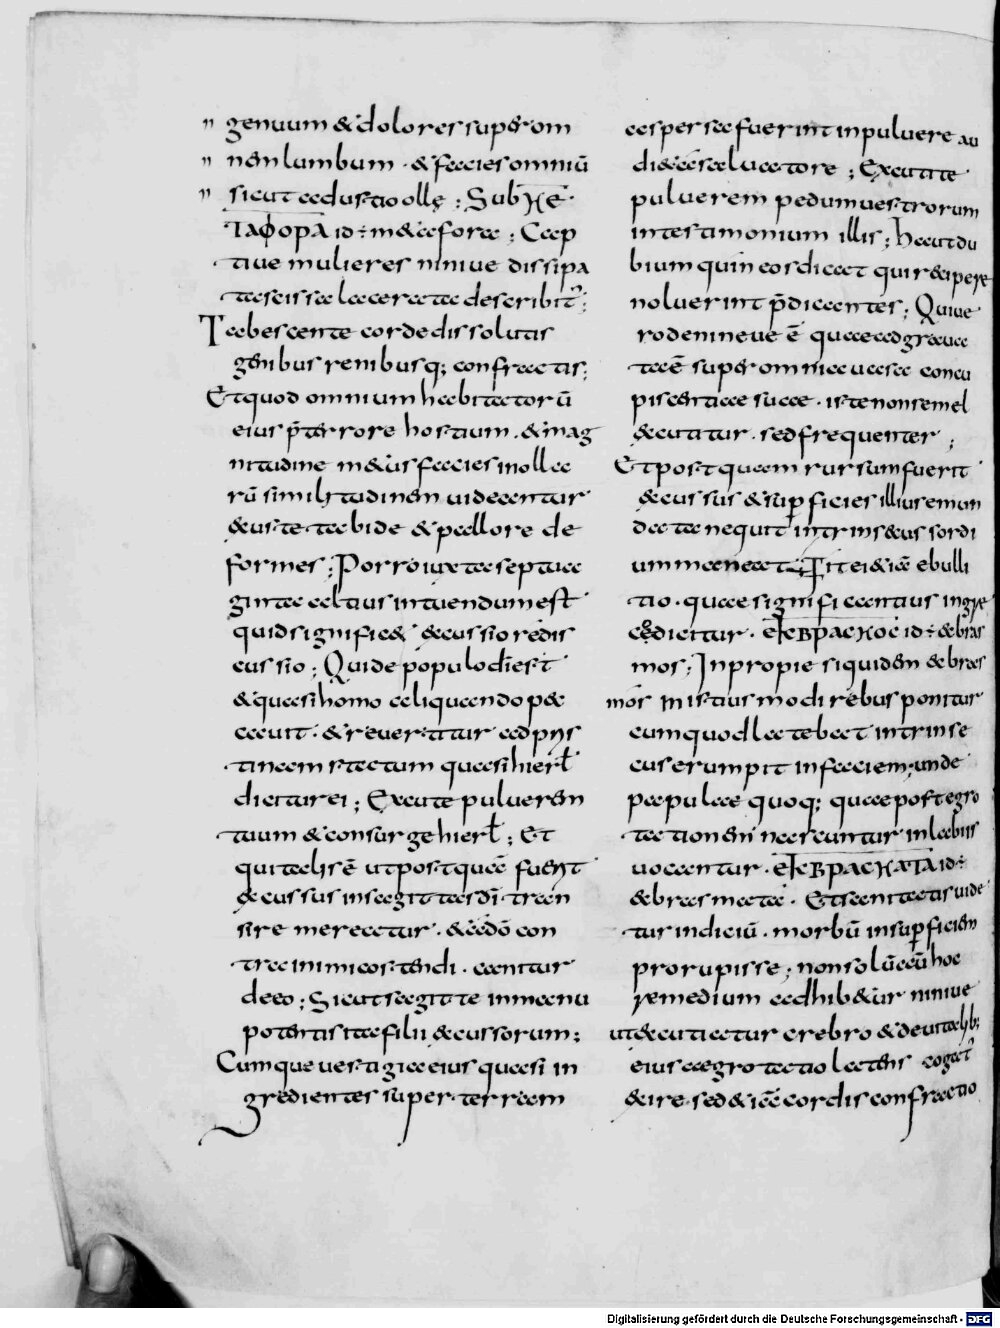 genuum & dolores sup̄ om
nem lumbum · & facies omniū
sicut adustio ollę ; Sub ΚΕ
ΤΑΦΟΡΑ id÷ m&afora ; Cap
tiue mulieres niniue dissipa
ta scissa lacerata describit̄ ;
Tabescente corde dissolutis
genibus renibusq; confractis ;
Et quod omnium habitatorū
eius p̄ terrore hostium · & mag
nitudine m&us facies in olla
rū similitudinem uideantur
&uste tabide & pallore de
formes ; Porro iuxta septua
ginta altius intuendum est
quid significa& &cussio redis
cussio ; Qui de populo di est
& quasi homo aliquando pec
cauit · & reuertitur ad prys
tinam statum quasi hierł
dicitur ei ; Excute puluerem
tuum & consurge hierł ; Et
qui talis ē ut postquā fuerit
&cussus in sagittas dī tran
sire mereatur · & ādō con
tra inimicos tendi · canitur
de eo ; Sicut sagitte in manu
potentis ita filii &cussorum ;
Cumque uestigia eius quasi in
gredientes super terram
aspersa fuerint in puluere au
di& a saluatore ; Excutite
puluerem pedum uestrorum
in testimonium illis ; haut du
bium quin eos dicat qui recipere
noluerint p̄dicantes ; Qui ue
ro de nineue ē quae ad graua
ta ē super omnia uasa concu
piscentiae suae · iste non semel
&cutitur · sed frequenter ;
Et postquam rursum fuerit
&cussus & sup̄ficies illius emun
data nequit intrins&us sordi
um maneat Fit ei & iā ebulli
tio · quae significantius in gre
co dicitur · ΕΚΒΡΑCΜΟC id÷ &bras
mos ; In propie siquidem &bras
mos in istius modi rebus ponitur
cum quod latebat intrinse
cus erumpit in faciem · unde
papulae quoq; quae post egro
tationem nascuntur in labiis
uocantur · ΕΚΒΡΑCΜΑΤΑ id÷
&brasmata · Et sanitatis uide
tur indiciū · morbū in sup̄ficiem
prorupisse ; non solū aū hoc
remedium adhib&ur niniue
ut &cutiatur crebro & de uitalib;
eius aegrotatio latens cogat̄
&ire · sed & iā cordis confractio